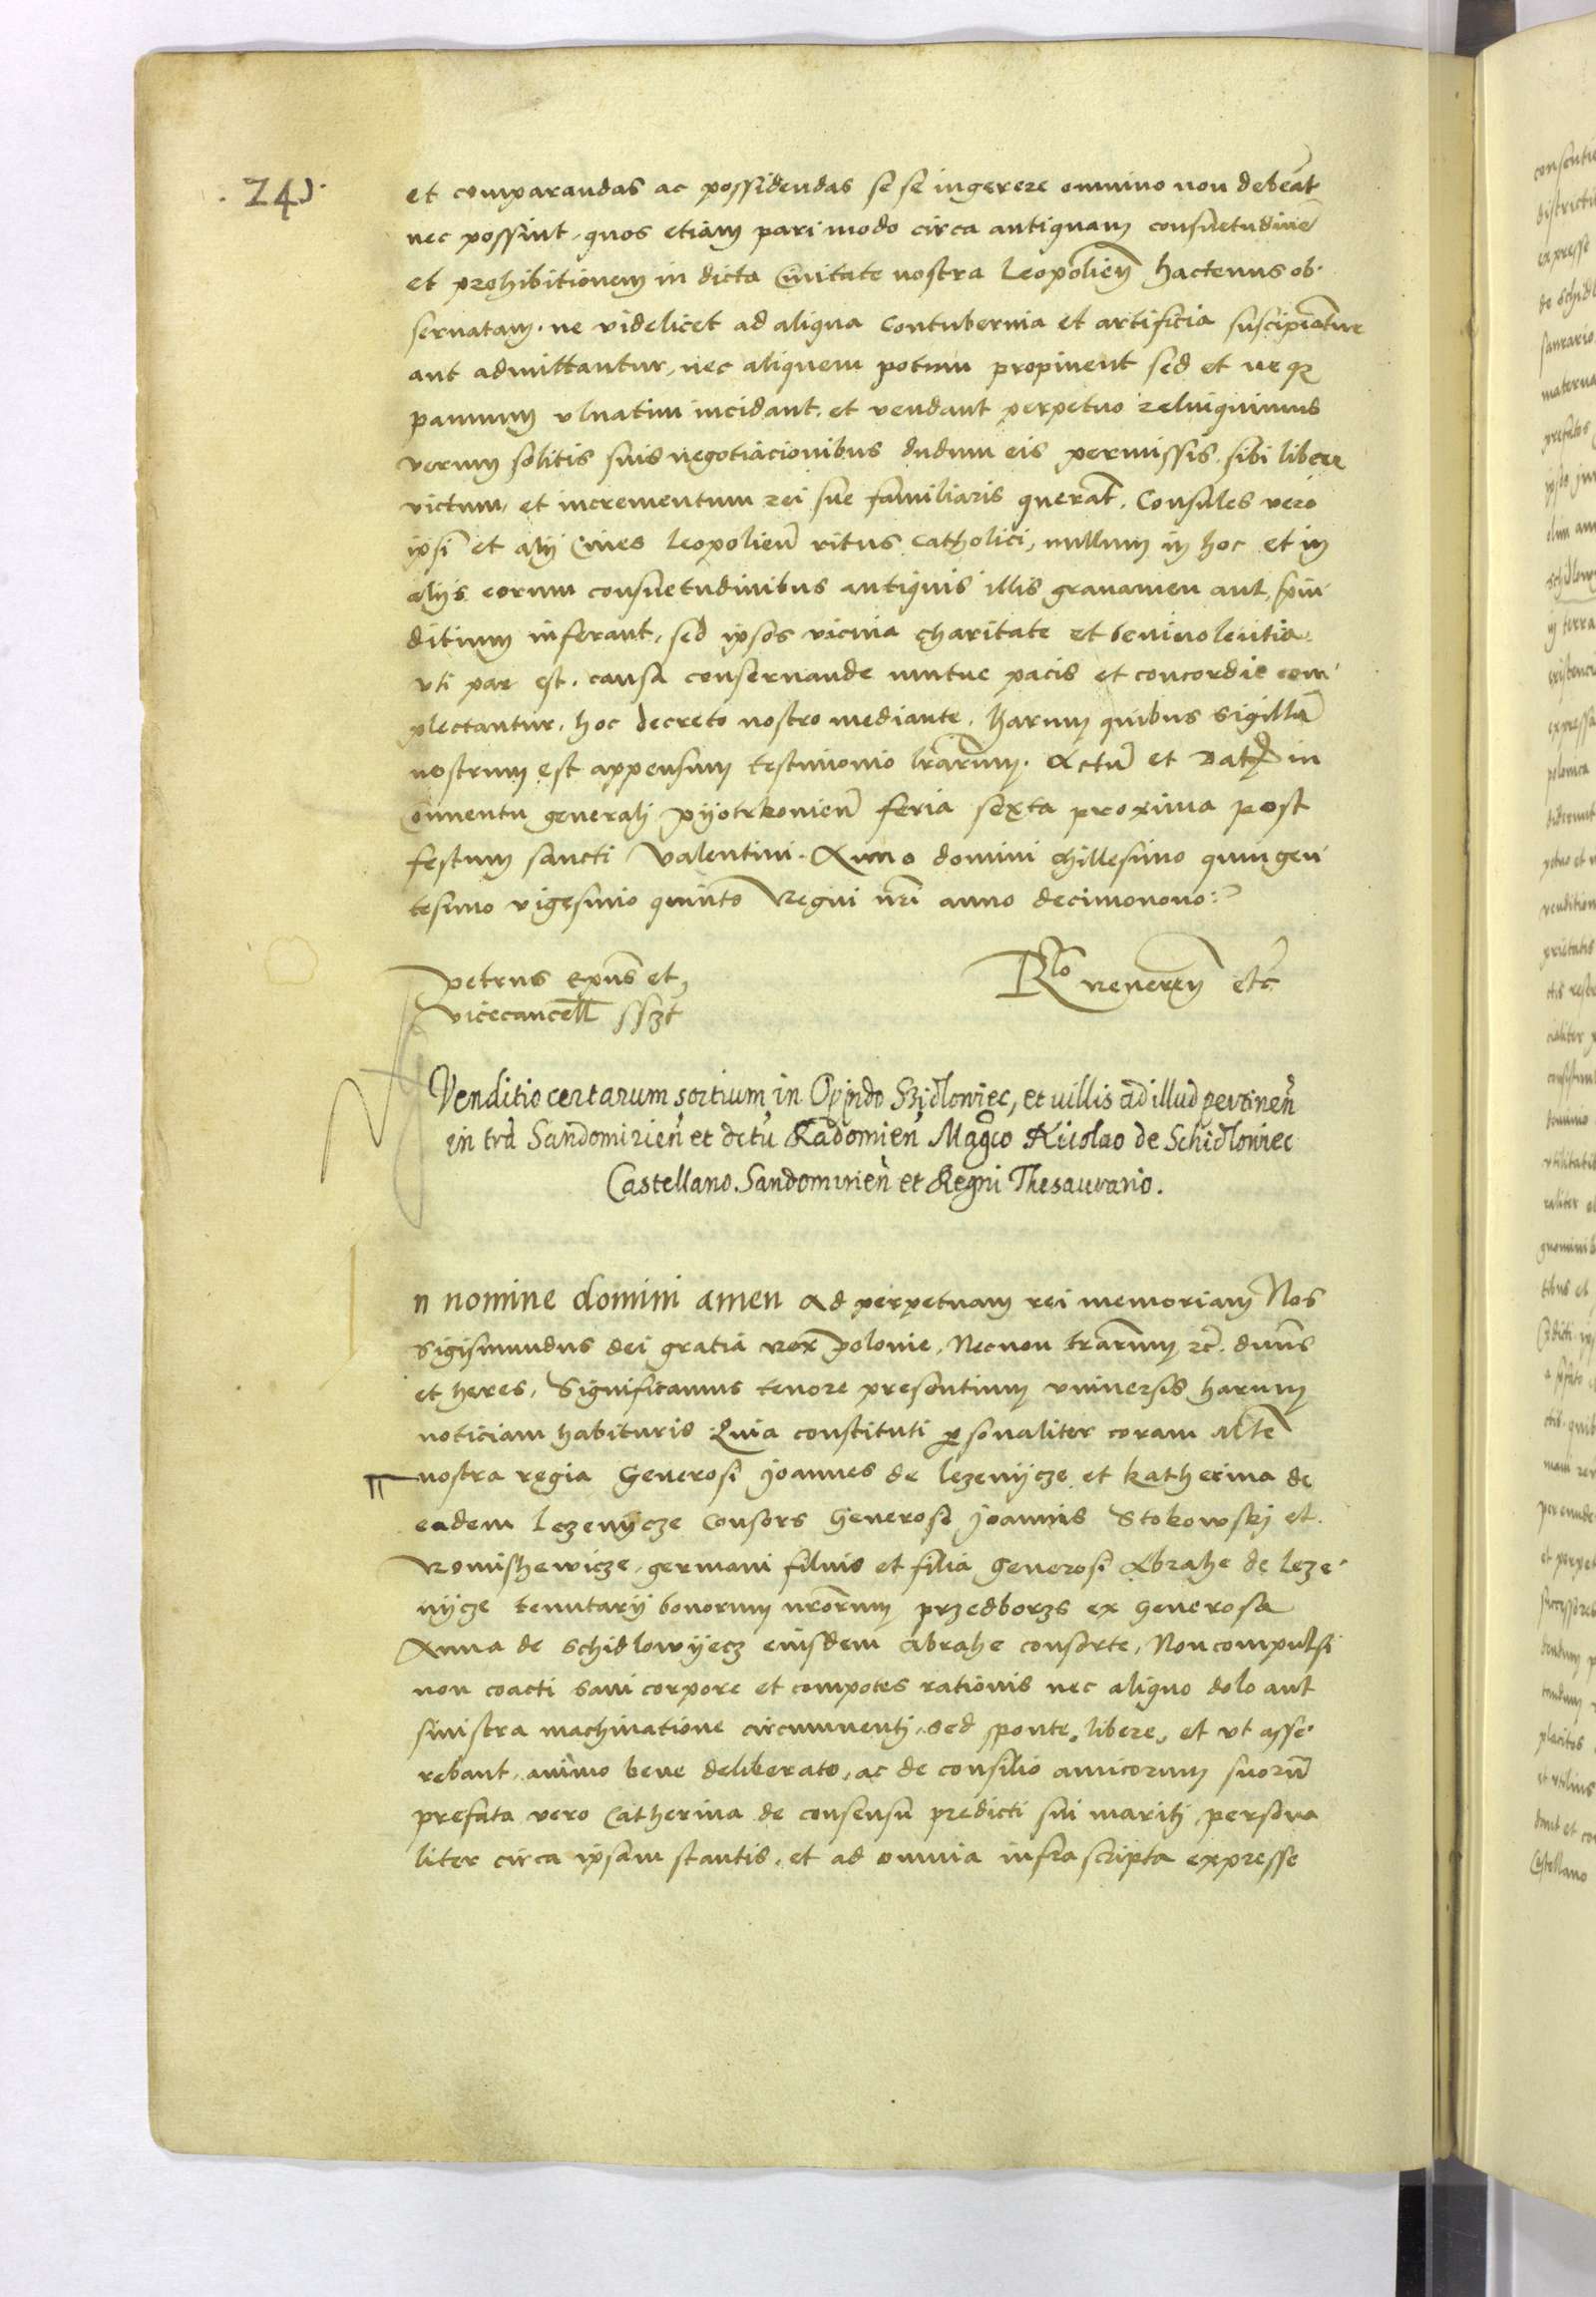 et comparandas ac possidendas se se ingerere omnino non debeāt
nec possint, quos etiam pari modo circa antiquam consuetudinē
et prohibitionem in dicta Ciuitate nostra Leopolieñ hactenus ob-
seruatam. ne videlicet ad aliqua Contubernia et artificia suscipiātur
aut admittantur, nec aliquem potum propinent sed et neqꝫ
pannum vlnatim incidant. et vendant perpetuo relinquimus
verum solitis suis negotiacionibus dudum eis permissis. sibi libere
victum, et incrementum rei sue familiaris querāt. Consules vero
ipsi et alij Ciues Leopolieñ ritus catholici, nullum in hoc et in
alijs eorum consuetudinibus antiquis illis grauamen aut
ditium inferant, sed ipsos vicina charitate et beniuolentia
vti par est. causa conseruande mutue pacis et concordie com-
plectantur, hoc decreto nostro mediante. Harum quibus Sigillū
nostrum est appensum testimonio lrārum. Actū et Datū in
Conuentu generalj Pyotrkouieñ feria sexta proxima post
festum sancti Valentini. Anno domini Millesimo quingen-
tesimo vigesimo quinto Regni nr̄i anno decimonono:
Petrus Ep̄us et
Vicecancell ssʒt
Rlo venereñ etc̄
Venditio certarum sortium in Oppido Szidlowiec, et uillis ad illud pertineñ
in trā Sandomirieñ et dctū Radomieñ Magco Nicolao de Schidlowiec
Castellano Sandomirieñ et Regni Thesaurario.
n nomine domini amen Ad perpetuam rei memoriam Nos
Sigismundus dei gratia Rex Polonie, Necnon trārum ꝛc̄. dnūs
et heres, Significamus tenore presentium vniuersis harum
noticiam habituris Quia constituti personaliter coram Mte
nostra regia Generosi Joannes de lezenijcze et Katherina de
eadem Lezenijcze Consors Generosi Joannis Stokowskj et
germani filius et filia Generosi Abrahe de leze-
nijcze tenutarij bonorum nrōrum przedborzs ex Generosa
Anna de Schidlowijecz eiusdem abrahe consorte, Non compulsi
non coacti sani corpore et compotes rationis nec aliquo dolo aut
sinistra machinatione circumuentj, sed sponte, libere, et vt asse-
rebant, animo bene deliberato, ac de consilio amicorum suorū
prefata vero Catherina de consensu predicti sui maritj persona
liter circa ipsam stantis, et ad omnia infra scripta expresse